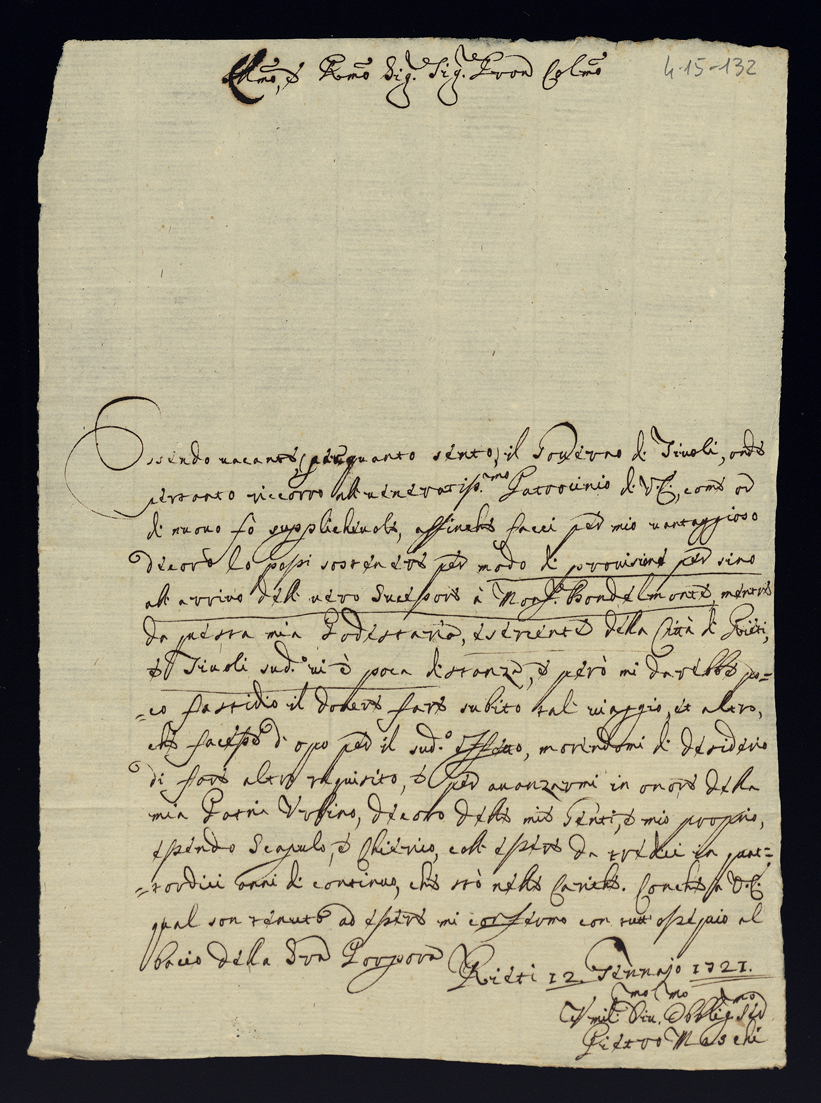 Ill.mo, e R.mo Sig. Sig. Pron Col.mo
4-15-132
Essendo vacante, (per quanto sento) il Governo di Tivoli, onde
pertanto riccorro all veneratiss.mo Patrocinio di V.E., come or
di nuovo fò supplichevole, affinche facci per mio vantaggioso
decoro lo possi sostenere per modo di provisione per sino
all arrivo dell vero Sucessore à Mons. Bondelmonte, mentre
da questa mia Podestaria, esistente della Città di Rieti,
e Tivoli sud.o vi è poca distanza, e però mi darebbe po=
=co fastidio il dovere fare subito tal viaggio, et altro,
che facesse di opo per il sud.o effetto, morendomi di desiderio
di fare altro requisito, e per avanzarmi in onore della
mia Patria Urbino, decoro delle mie Genti, e mio proprio,
essendo Scapulo, e Chierico, coll essere da tredici in quat=
=tordici anni di continuo, che stò nelle Cariche. Conche a V.E.
qual son tenuto ad essere mi confermo con tutt ossequio al
bacio della Sra Porpora
Rieti 12. Gennajo 1721.
Umil.mo Div.mo Obblig.mo Serd
Pietro Meschi